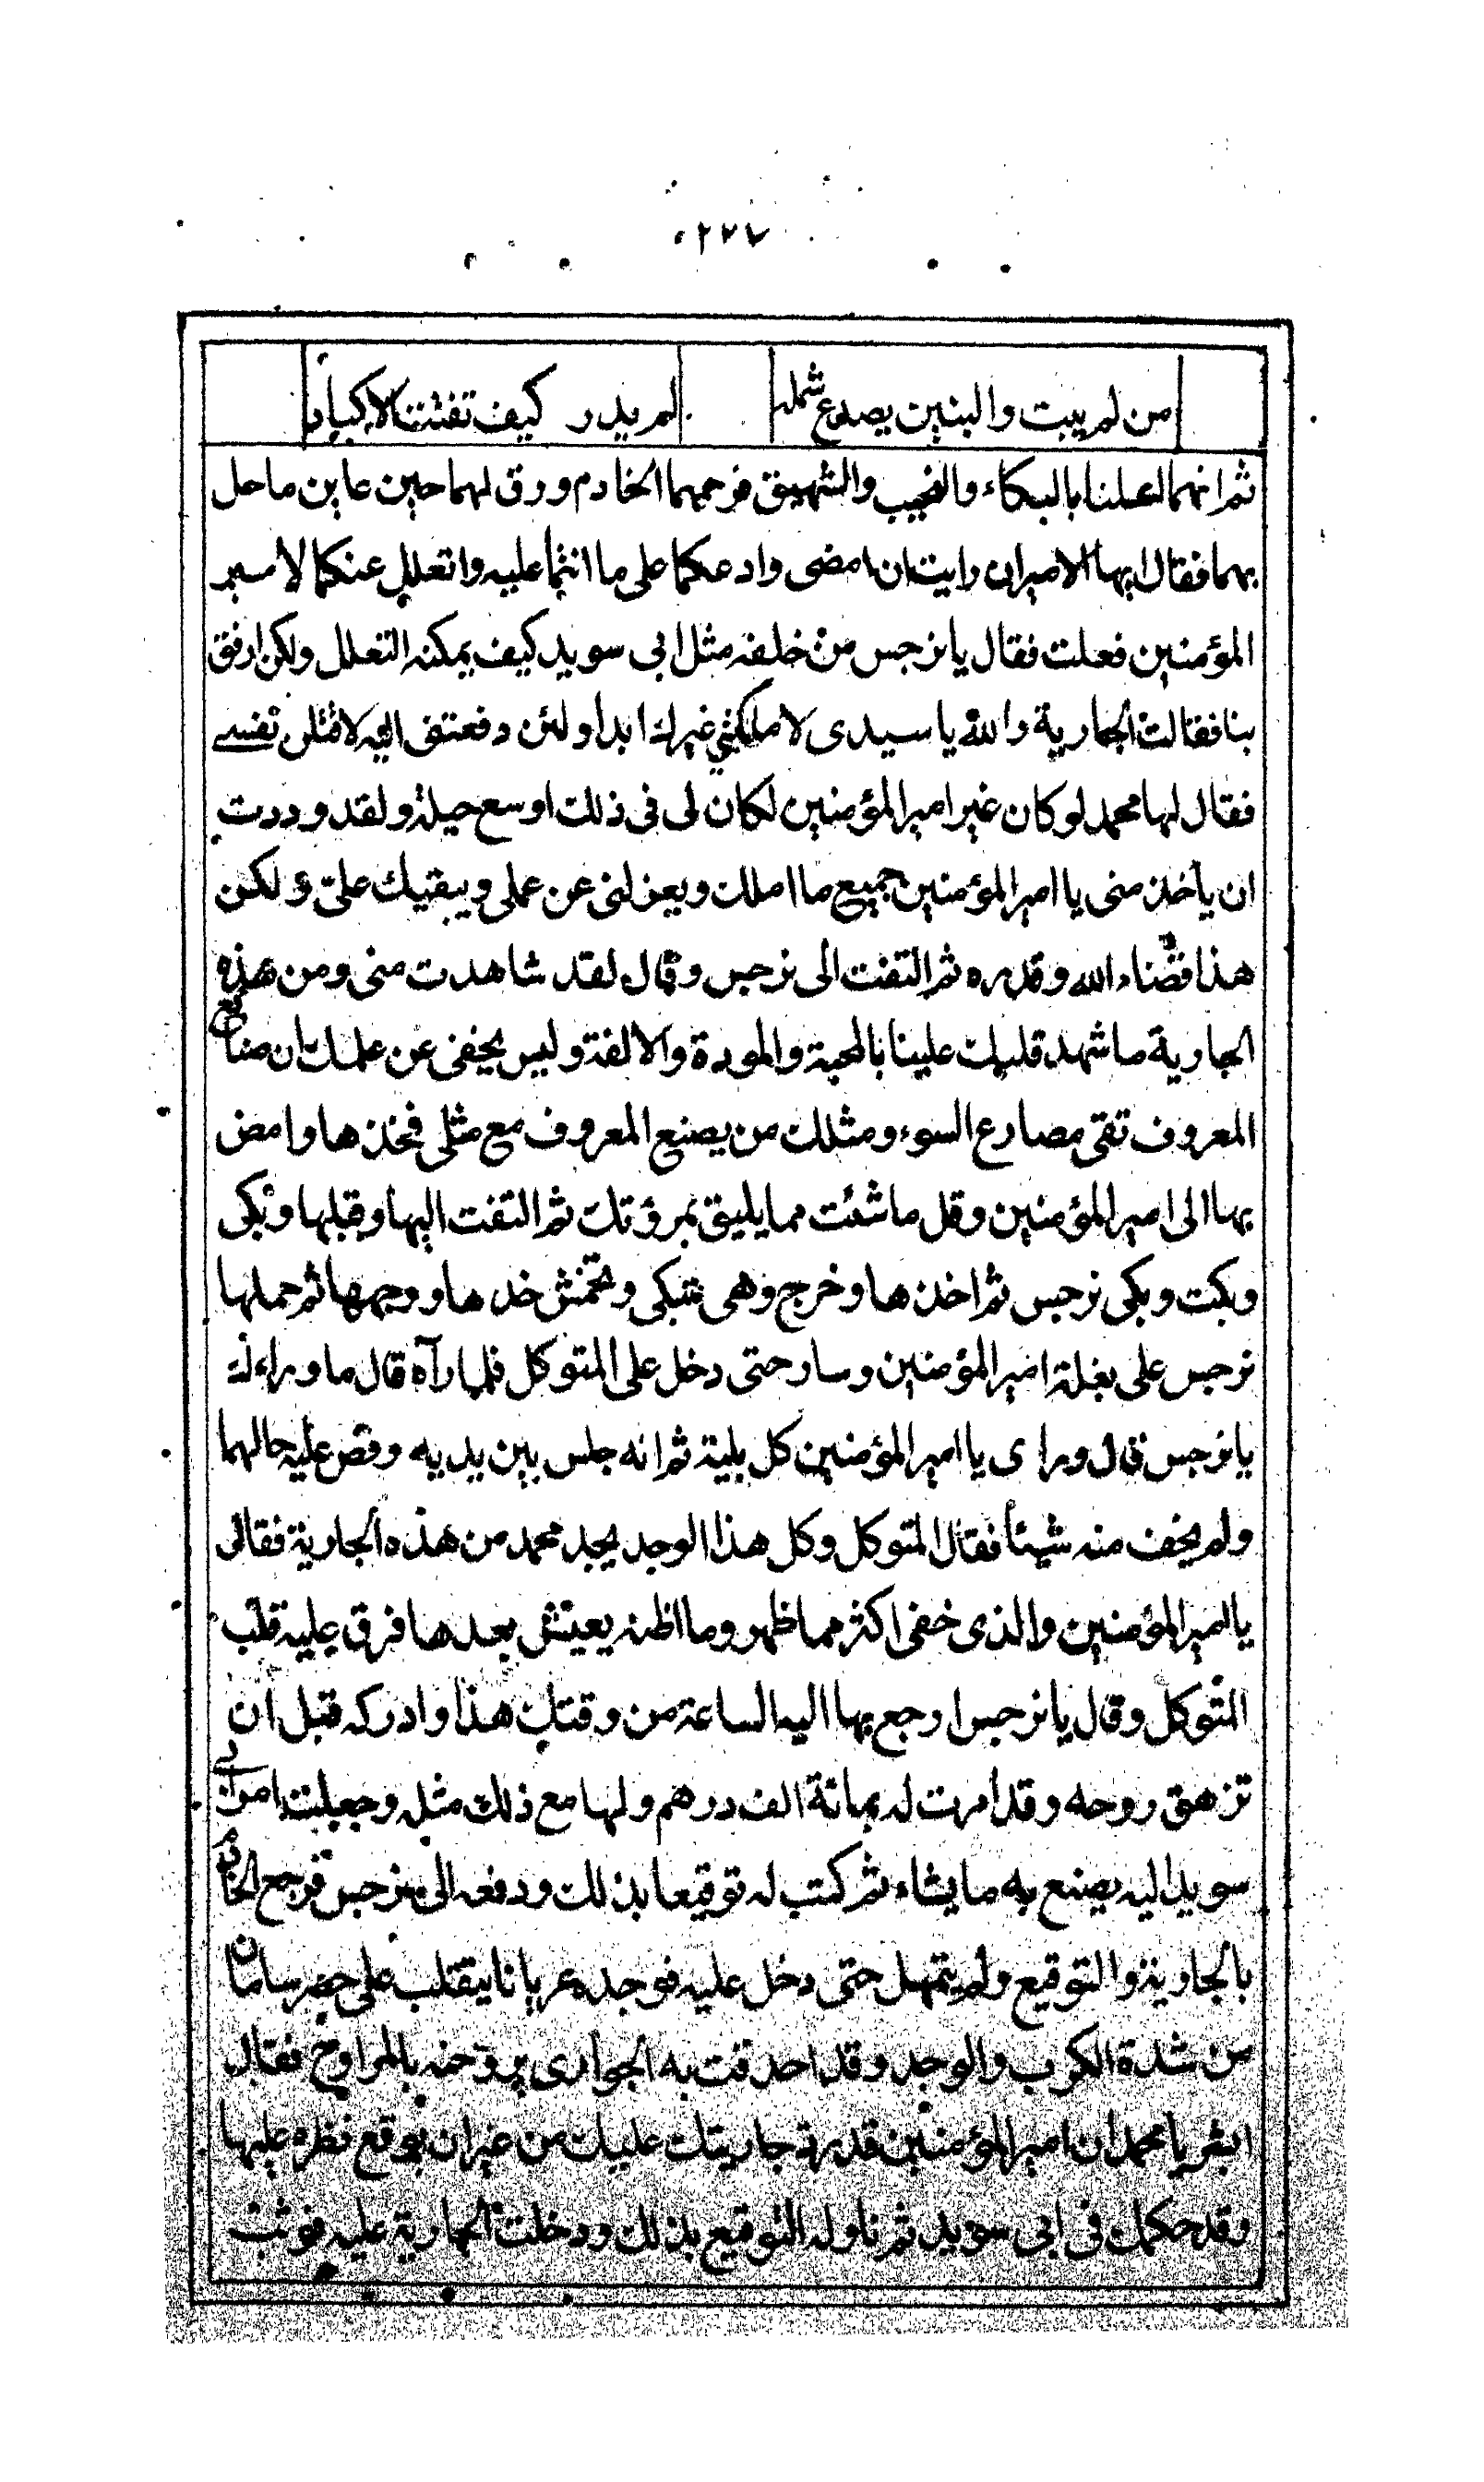 ٢٧٧
من لم يبت والبين يصدع شمله لم يدر كيف تفتت الاكباد
ثم انهما اعلنا بالبكاء والنحيب والشهيق فرحمهما الخادم ورق لهما حين عاين ما حل
بهما فقال ايها الامير ان رايت ان امضى وادعكما على ما انتما عليه واتعلل عنكما لامير
المؤمنين فعلت فقال يا نرجس من خلفه مثل ابى سويد كيف يمكنه التعلل ولكن ارفق
بنا فقالت الجارية والله يا سيدى لا ملكنى غيرك ابدا ولئن دفعتنى اليه لاقتلن نفسى
فقال لها محمد لو كان غير امير المؤمنين لكان لى فى ذلك اوسع حيلة ولقد وددت
ان ياخذ منى يا امير المؤمنين جميع ما املك ويعزلنى عن عملى ويبقيك علىّ ولكن
هذا قضاء الله وقدره ثم التفت الى نرجس وقال لقد شاهدت منى ومن هذه
الجارية ما شهد قلبك علينا بالمحبة والمودة والالفة وليس يخفى عن علمك ان صنائع
المعروف تقى مصارع السوء ومثلك من يصنع المعروف مع مثلى فخذها وامض
بها الى امير المؤمنين وقل ما شئت مما يليق بمروتك ثم التفت اليها وقبلها وبكى
وبكت وبكى نرجس ثم اخذها وخرج وهى تبكى وتخمش خدها ووجهها ثم حملها
نرجس على بغلة امير المؤمنين وسار حتى دخل على المتوكل فلما رآه قال ما وراءك
يا نرجس قال وراى يا امير المؤمنين كل بلية ثم انه جلس بين يديه وقص عليه حالهما
ولم يخف منه شيئا فقال المتوكل وكل هذا الوجد يجد محمد من هذه الجارية فقال
يا امير المؤمنين والذى خفى اكثر مما ظهر وما اظنه يعيش بعدها فرق عليه قلب
المتوكل وقال يا نرجس ارجع بها اليه الساعة من وقتك هذا وادركه قبل ان
تزهق روحه وقد امرت له بمائة الف درهم ولها مع ذلك مثله وجعلت امر ابى
سويد اليه يصنع به ما يشاء ثم كتب له توقيعا بذلك ودفعه الى نرجس فرجع الخادم
بالجارية والتوقيع ولم يتمهل حتى دخل عليه فوجده عريانا يتقلب على حصر سامان
من شدة الكرب والوجد وقد احدقت به الجوارى يروحنه بالمراوح فقال
ابشر يا محمد ان امير المؤمنين قد رد جاريتك عليك من غير ان يوقع نظره عليها
وقد حكمك فى ابى سويد ثم ناوله التوقيع بذلك ودخلت الجارية عليه فوثب